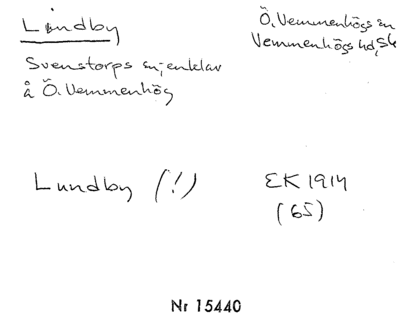 Lindby
Ö. Vemmenhögs sn
Vemmenhögs hd, Sk
Svenstorps sn;enklav
å Ö. Vemmenhög
Lundby (!)
EK 1914
(65)
Nr 15440